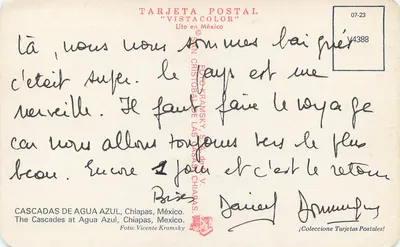 TARJETA POSTAL
"VISTACOLOR"
Lito en México
07-23
V4388
Là, nous nous sommes baignés
c'était super. Le pays est une
merveille. Il faut faire le voyage
car nous allons toujours vers le plus
beau. Encore 1 jour et c'est le retour
Bises Daniel Dominique
CASCADAS DE AGUA AZUL, Chiapas, México.
The Cascades at Agua Azul, Chiapas, Mexico.
Foto: Vicente Kramsky
¡Coleccione Tarjetas Postales!
KRAMSKY
SAN CRISTOBAL DE LAS CASAS, CHIAPAS